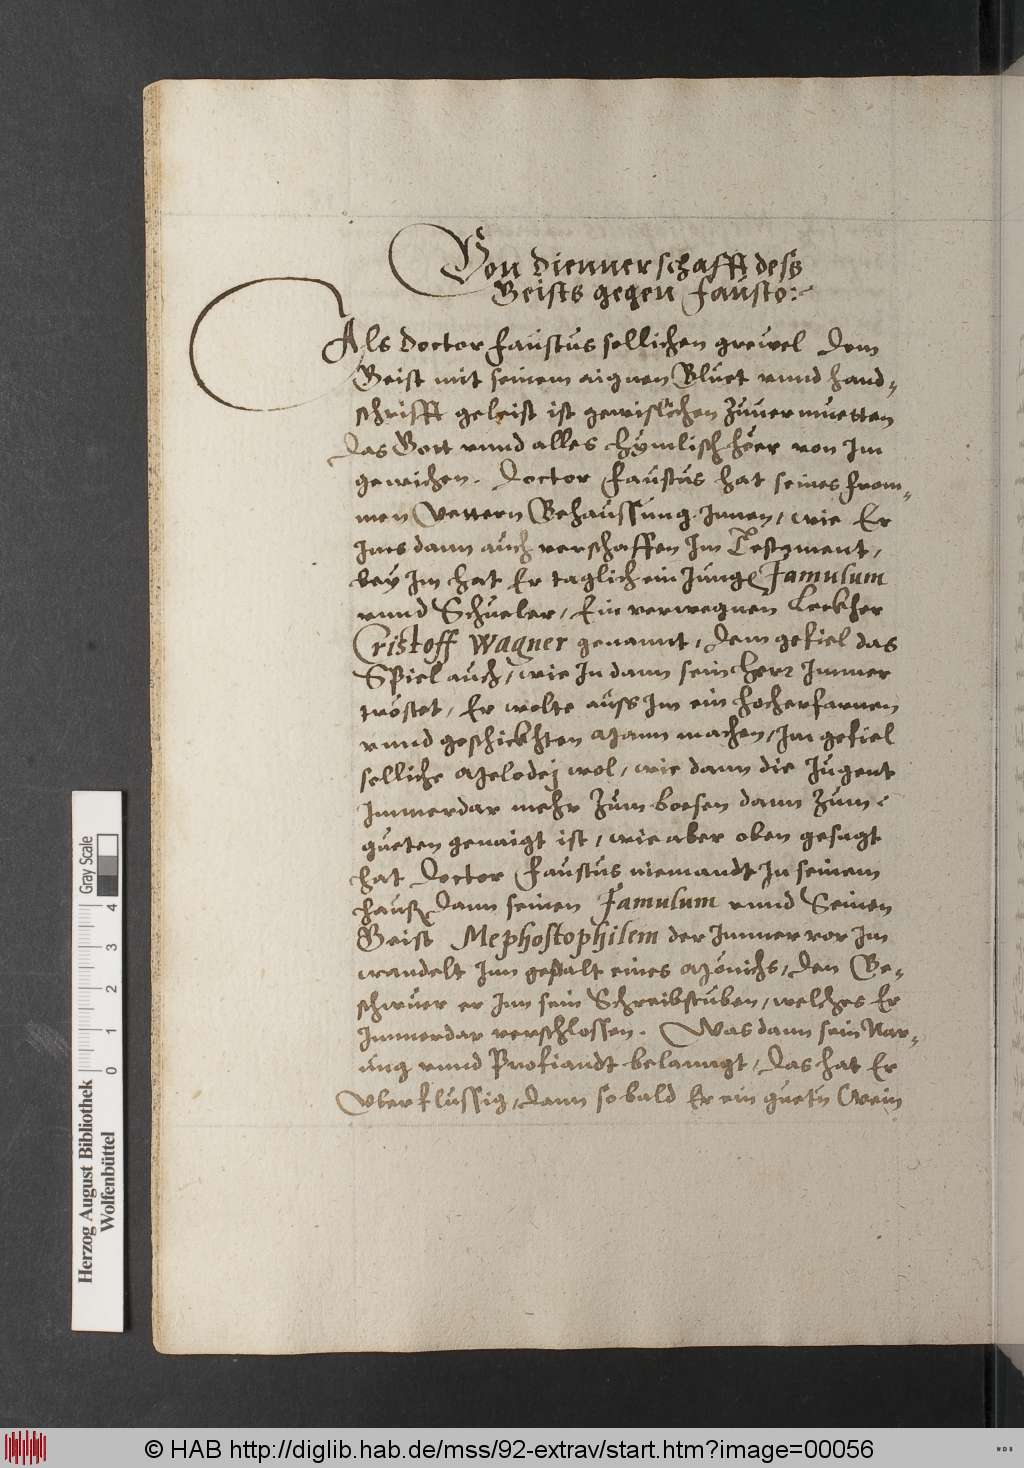 Von Diennerschafft dess
Geists gegen Fausto:
Als Doctor Faustus sollichen grewel dem
Geist mit seinem aignen Bluet vnnd hand-
schrifft geleist ist gewislichen Zuuermuetten
das Gott vnnd alles hymlisch heer von Im
gewichen. Doctor Faustus hat seines from-
men Vettern Behaussung Innen, wie Er
Ims dann auch verschaffen Im Testament,
bey Im hat Er taglich ein Junge Famulum
vnnd Schueler, Ein verwegnen Leckher
Cristoff Wagner genannt, dem gefiel das
Spiel auch, wie In dann sein herr Immer
tröstet, Er wolte auss Im ein hocherfarnen
vnnd geschickhten Mann machen, Im gefiel
solliche Melodej wol, wie dann die Jugent
Immerdar mehr Zum boesen dann Zum
gueten genaigt ist, wie aber oben gesagt
hat Doctor Faustus niemandt In seinem
hauß dann seinen Famulum vnnd Seinen
Geist Mephostophilem der Immer vor Im
wandelt Inn gestalt eines Mönichs, den Be-
schwuer er Inn sein Schreibstuben, welches Er
Immerdar verschlossen. Was dann sein Nar-
ung vnnd Profiandt belanngt, das hat Er
Vberflussig, dann so bald Er ein guetn Wein
Herzog August Bibliothek
Wolfenbüttel
0 1 2 3 4
Gray Scale
© HAB http://diglib.hab.de/mss/92-extrav/start.htm?image=00056
WDB